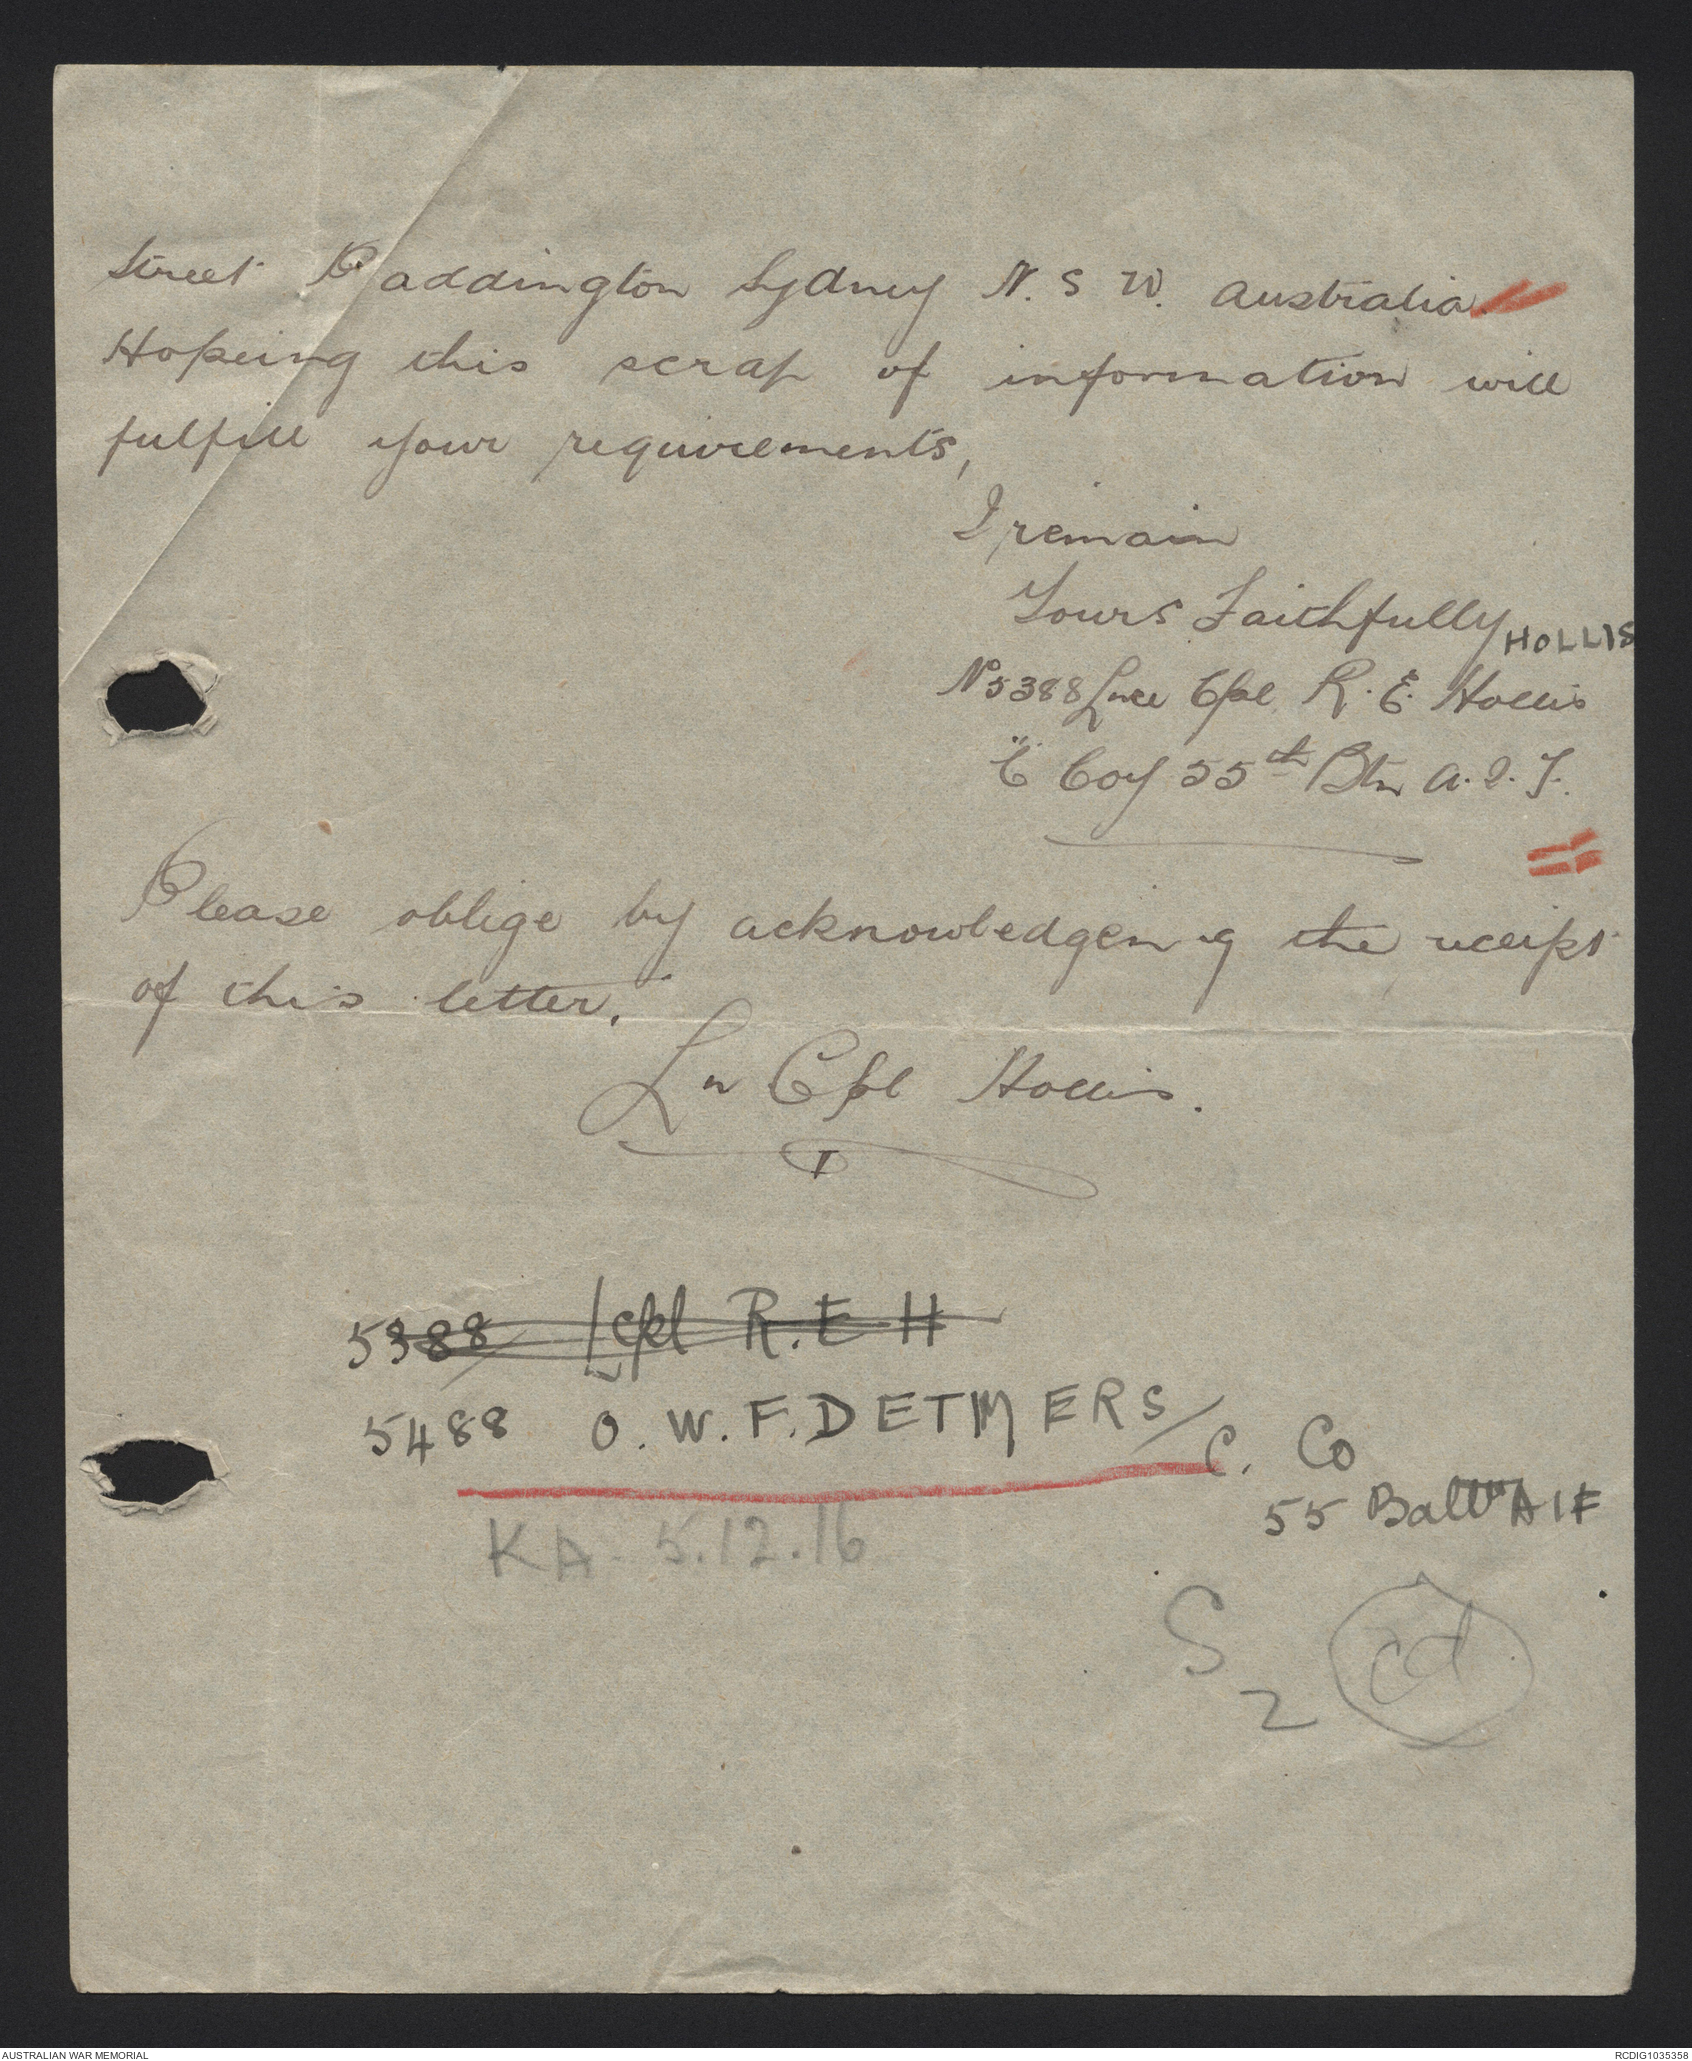 Street Paddington Sydney N. S. W. Australia.
Hopeing this scrap of information will
fulfill your requirements,
I remain
Yours Faithfully
HOLLIS
No 5388 Lnce Cpl R. E. Hollis
"C" Coy 55th Btn A. I. F.
Please oblige by acknowledgeing the receipt
of this letter.
Ln Cpl Hollis.
5388 L cpl R. E H
5488 O. W. F. DETMERS
C. Co
55 Battn AIF
KA. 5.12.16
S2
cd
AUSTRALIAN WAR MEMORIAL
RCDIG1035358